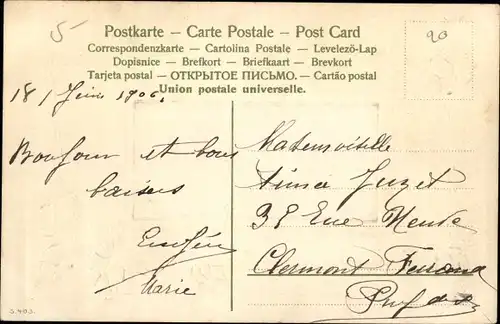 5-
20
Postkarte – Carte Postale – Post Card
Correspondenzkarte – Cartolina Postale – Levelező-Lap
Dopisnice – Brefkort – Briefkaart – Brevkort
Tarjeta postal – ОТКРЫТОЕ ПИСЬМО. – Cartão postal
Union postale universelle.
18 1906
Bonjour et bons
baisers
Marie
Mademoiselle
38 Rue
Clermont Ferrand